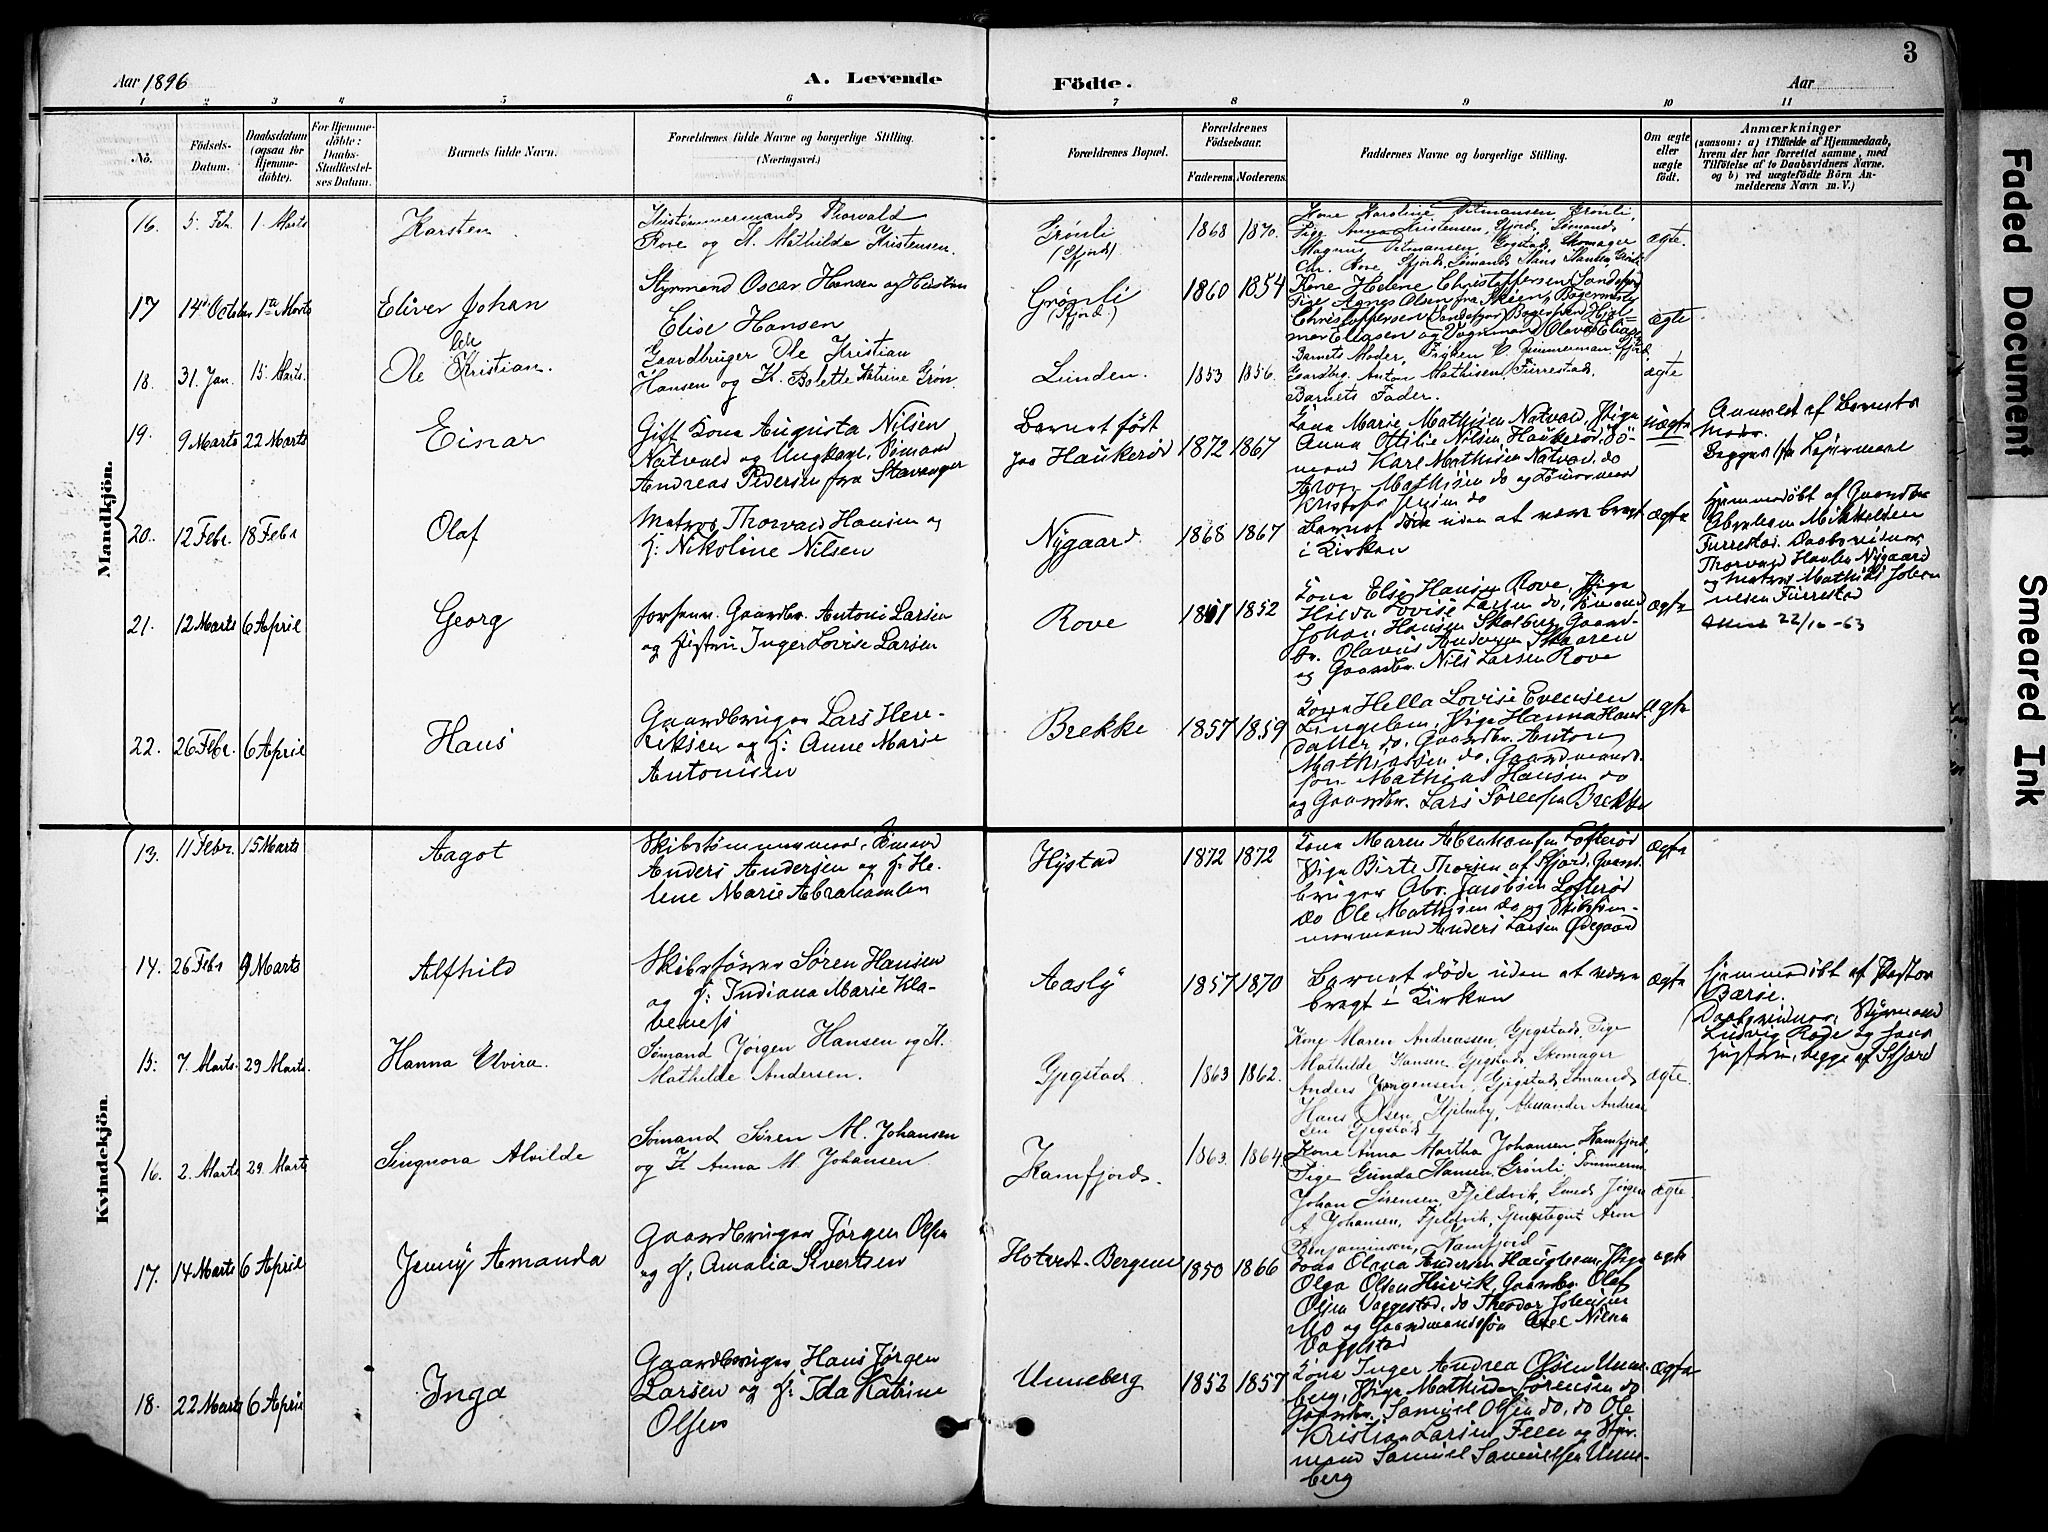 Aar 1896
A. Levende
Födte.
Aar
3
1 2 3 4 5 6 7 8 9 10 11
No.
Födsels-
Datum.
Daabsdatum
(ogsaa for
Hjemme-
döbte).
For Hjemme-
döbte:
Daabs-
Stadfæstel-
ses Datum.
Barnets fulde Navn.
Forældrenes fulde Navne og borgerlige Stilling.
(Næringsvei.)
Forældrenes Bopæl.
Forældrenes
Födselsaar.
Faderens. Moderens.
Faddernes Navne og borgerlige Stilling.
Om ægte
eller
uægte
födt.
Anmærkninger
(saasom: a) i Tilfælde af Hjemmedaab,
hvem der har forrettet samme, med
Tilföielse af to Daabsvidners Navne.
og b) ved uægtefödte Börn An-
melderens Navn m. V.)
Mandkjön.
16. 5. Febr. 1. Marts
Karsten
Thorvald
Rove og H. Mathilde Kristensen.
Grønli
(Sfjord)
1868 1870.
Kone Karoline Ditmansen, Grønli,
Pige Anna Kristensen, Sfjord, Sømand
Magnus Ditmansen, Gjegstad, Skomager
Chr. Rove Sfjord, Sømand Hans Hansen, Grønli
ægte.
17 14de October 1ste Marts
Eliver Johan
Styrmand Oscar Hansen og Hustru
Elise Hansen
Grønli
(Sfjord.)
1860 1854
Kone Helene Christoffersen, Sandefjord
Pige Agnes Olsen fra Skien,
Christoffersen Sandefjord
mar Eliasen og Vognmand Olavus Elias-
ægte
18. 31. Jan. 15. Marts.
Ole Kristian.
Gaardbruger Ole Kristian
Hansen og H. Bolette Katrine Grøn.
Lunden.
1853 1856.
Barnets Moder, Sfjord.
Gaardbr. Anton Mathisen, Furrestad,
Barnets Fader.
ægte
19. 9 Marts 22 Marts
Einar
Gift Kona Augusta Nilsen
Natvald og Ungkarl, Sømand
Andreas Pedersen fra Stavanger
Barnet født
paa Haukerød
1872 1867
Kona Marie Mathisen Natvald, Pige
Anna Ottilie Nilsen Haukerød, Sø-
mand Karl Mathisen Natvald. do
Aron Mathisen do og
Kristofer do
uægte
Anmeldt af Barnets
Moder.
Begges 1ste Leiermaal
20. 12 Febr. 18 Febr
Olaf
Matros Thorvald Hansen og
H: Nikoline Nilsen
Nygaard
1868 1867
Barnet døde uden at være bragt
i Kirken
ægte
Hjemmedøbt af Gaardbr.
Abraham Mikkelsen
Furrestad. Daabsvidner,
Thorvald Hansen Nygaard
og Matros Mathias Johan-
nesen Furrestad
21. 12 Marts 6 April
Georg
forhenv. Gaardbr. Antoni Larsen
og Hustru Inger Lovise Larsen
Rove
1852
Kona Else Hansen Rove, Pige
Hilda Lovise Larsen do, Sømand
Johan Hansen Skolberg, Gaard-
br. Olavus Andersen Skaaren
og Gaardbr. Nils Larsen Rove
ægte
22/10-63
22. 26 Febr. 6 April
Hans
Gaardbruger Lars Hen-
riksen og H: Anne Marie
Antonisen
Brekke
1857 1859
Kona Hella Lovise Evensen
Lingelem, Pige Hanna Hans-
datter do, Gaardbr. Anton
Mathiassen do, Gaardmands-
søn Mathias Hansen do
og Gaardbr. Lars Sørensen Brekke
ægte
Kvindekjön.
13. 11 Febr. 15 Marts
Aagot
Skibstømmermand, Sømand
Anders Andersen og H: He-
lene Marie Abrahamsen
Hystad
1872 1872
Kona Maren Abrahamsen Lofterød
Pige Birte Thorsen af Sfjord, Gaard-
bruger Abr. Jacobsen Lofterød
do Ole Mathisen do og Skibstøm-
mermand Anders Larsen Ødegaard
ægte
14. 26 Febr 9 Marts
Alfhild
Skibsfører Søren Hansen
og H: Indiana Marie Kla-
veness
Aasly
1857 1870
Barnet døde uden at være
bragt i Kirken
ægte
Hjemmedøbt af Pastor
Barsøe.
Daabsvidner, Styrmand
Ludvig Rode og hans
Hustru, begge af Sfjord
15. 7. Marts. 29 Marts.
Hanna Elvira.
Sømand Jørgen Hansen og H.
Mathilde Andersen.
Gjegstad.
1863 1862.
Kone Maren Andreassen, Gjegstad, Pige
Mathilde Hansen, Gjegstad, Skomager
Anders Jørgensen, Gjegstad, Sømand
Hans Olsen, Hjelmby, Alexander Andrea-
sen Gjegstad
ægte.
16. 2. Marts 29. Marts
Singnora Alvilde
Sømand Søren M. Johansen
og H. Anna M. Johansen
Kamfjord.
1863. 1864.
Kone Anna Martha Johansen, Kamfjord,
Pige Gunda Hansen, Grønli, Tømmerm.
Johan Sørensen, Fjeldvik, Smed Jørgen
A Johansen, Fjeldvik, Tjenstegut Aron
Benjaminsen, Kamfjord
ægte.
17. 14 Marts 6 April
Jenny Amanda
Gaardbruger Jørgen Olsen
og H. Amalia Sivertsen
Hotvedt-Bergene
1850 1866
Kona Olava Andersen Haughem, Pige
Olga Olsen Huvik, Gaardbr. Olaf
Olsen Vaggestad, do Theodor Johansen
Mo og Gaardmandssøn Axel Nilsen
Vaggestad
ægte
18. 22 Marts 6 April
Inga
Gaardbruger Hans Jørgen
Larsen og H: Ida Katrine
Olsen
Unneberg
1852 1857
Kona Inger Andrea Olsen Unne-
berg, Pige Mathilde Sørensen do
Gaardbr. Samuel Olsen do, do Ole
Kristian Larsen Feen og Styr-
mand Samuel Samuelsen Unne-
berg
ægte
Faded Document
Smeared Ink